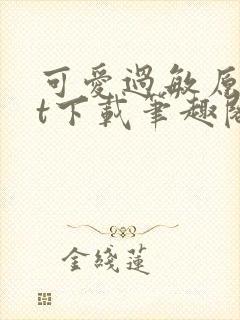 可愛過敏原
t下載筆趣閣
金綫蓮